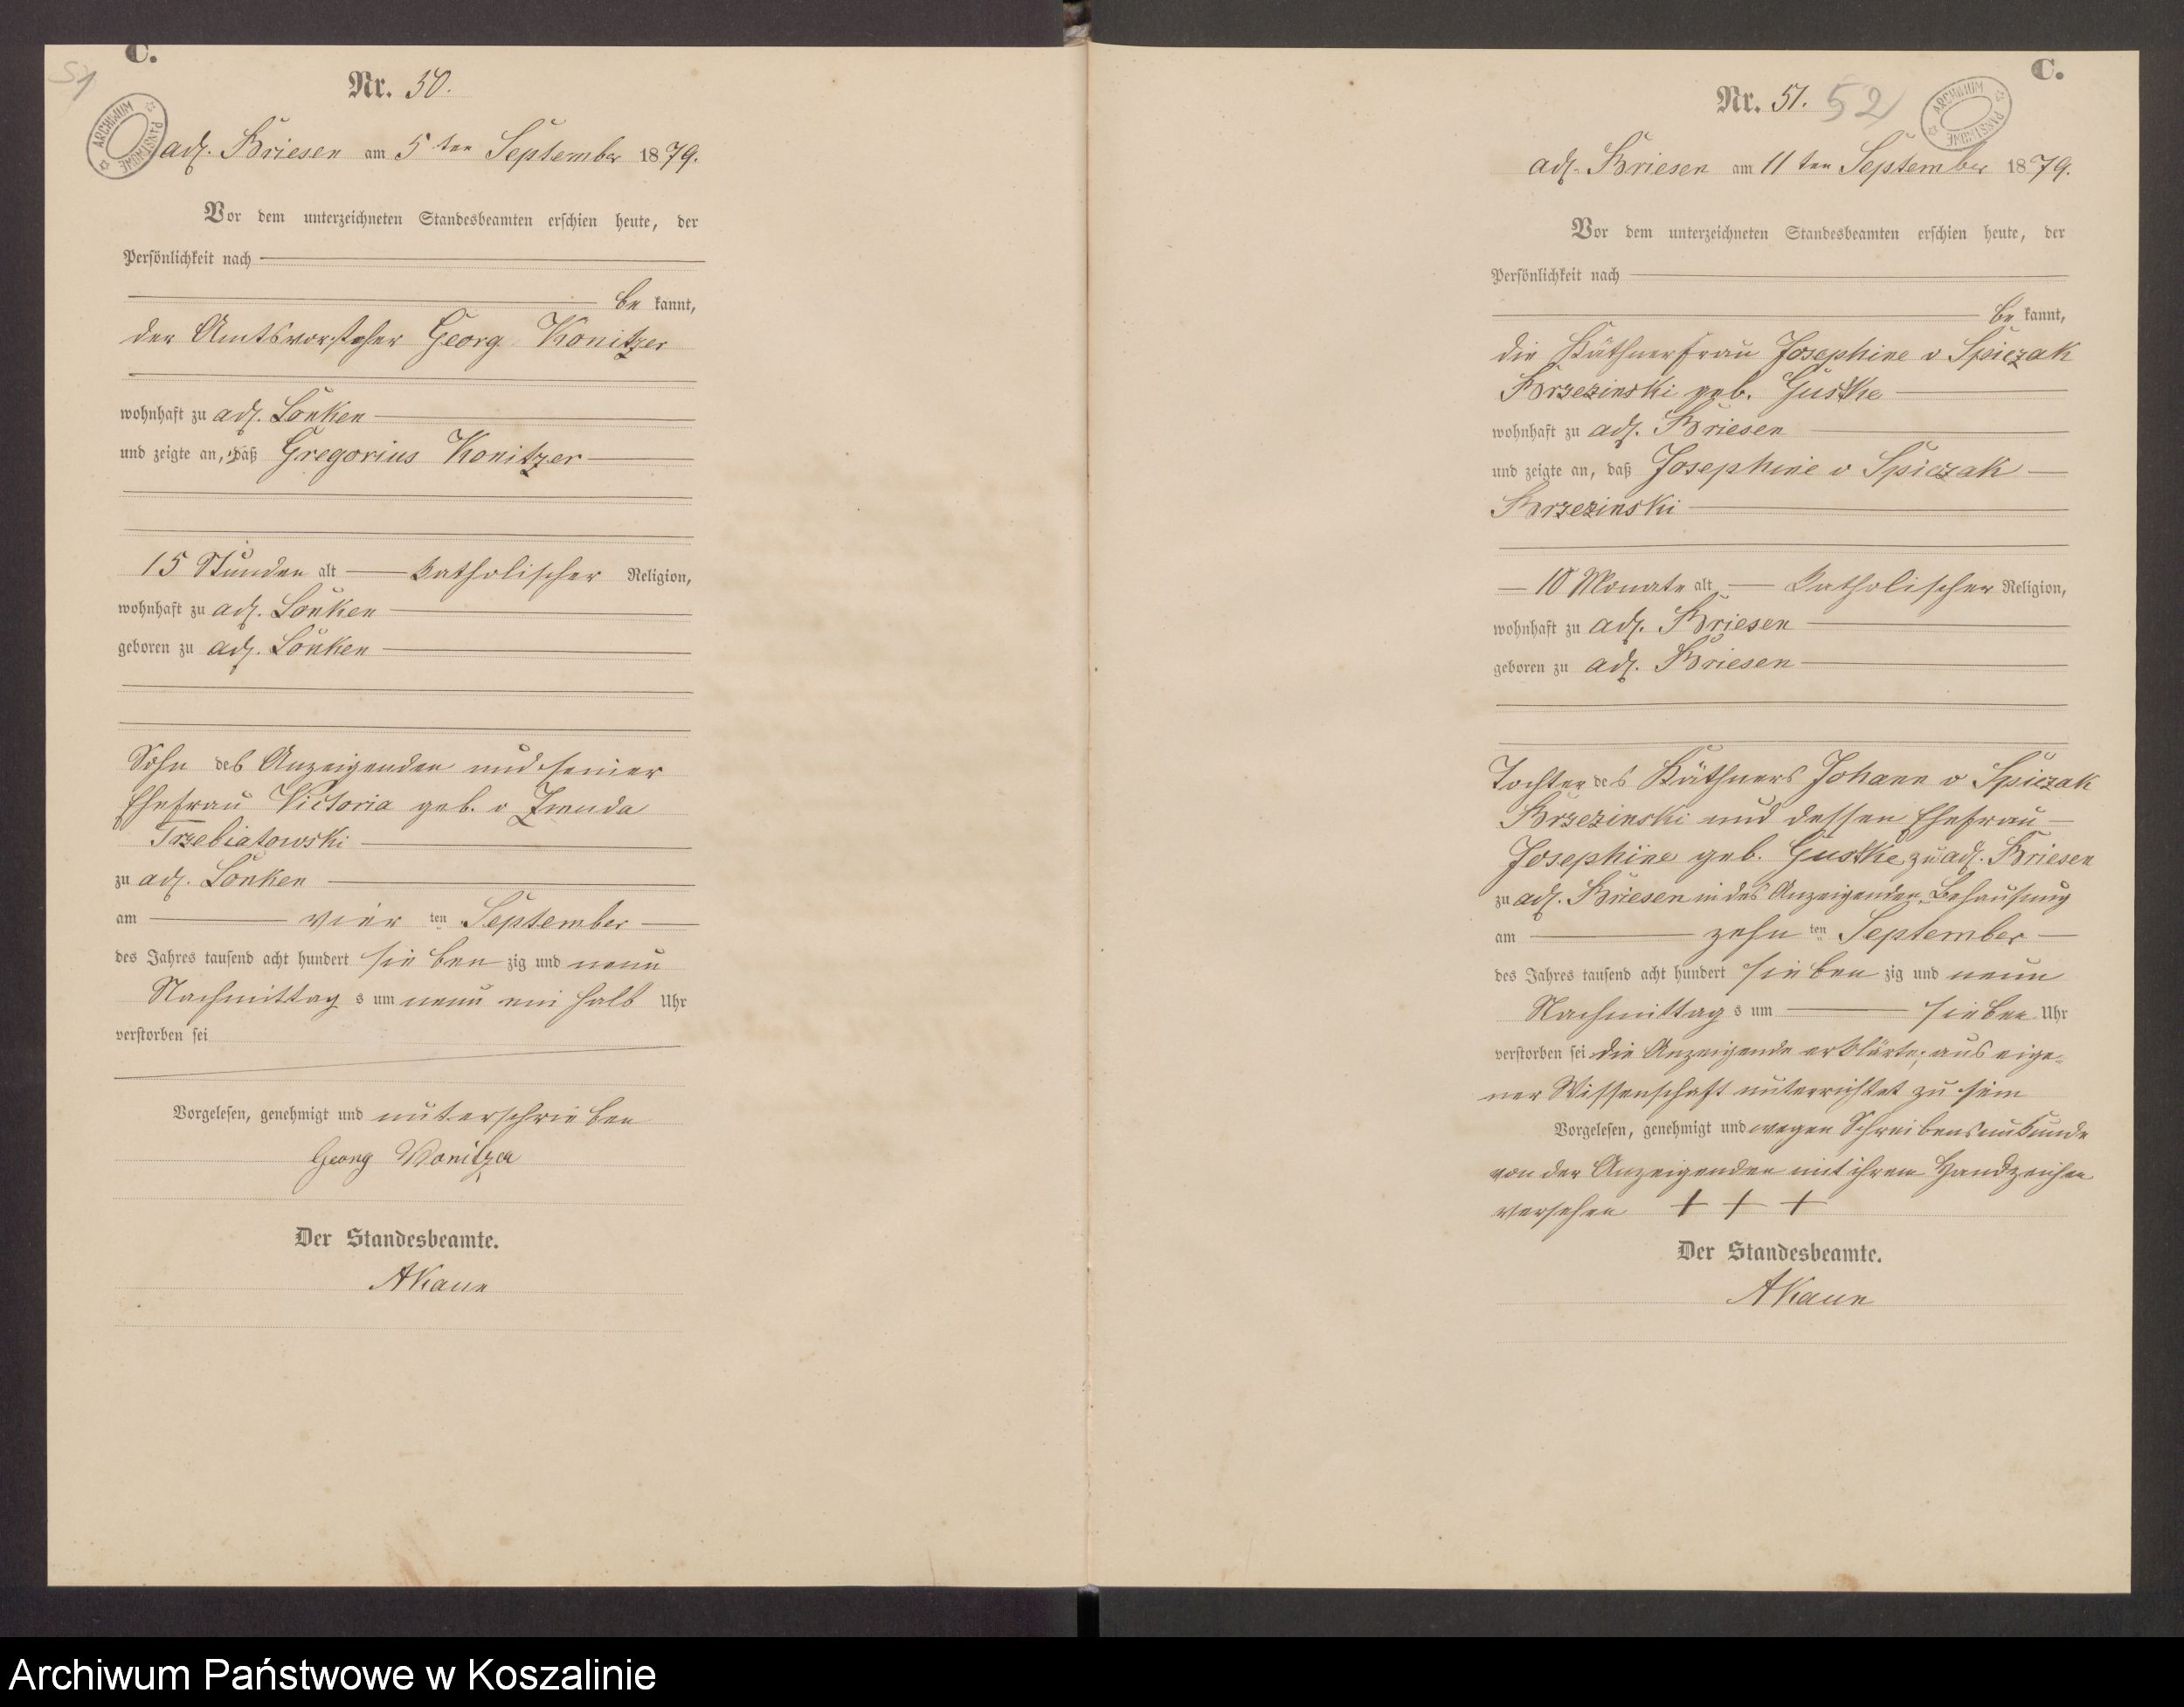 C.
51
Nr. 50.
ARCHIWUM PAŃSTWOWE
adl. Briesen am 5ten September 1879.
Vor dem unterzeichneten Standesbeamten erschien heute, der
Persönlichkeit nach
be kannt,
der Amtsvorsteher Georg Konitzer
wohnhaft zu adl. Lonken
und zeigte an, daß Gregorius Konitzer
15 Stunden alt katholischer Religion,
wohnhaft zu adl. Lonken
geboren zu adl. Lonken
Sohn des Anzeigenden und seiner
Ehefrau Victoria geb. v Zmuda
Trzebiatowski
zu adl. Lonken
am vier ten September
des Jahres tausend acht hundert sieben zig und neun
Nachmittag s um neun ein halb Uhr
verstorben sei
Vorgelesen, genehmigt und unterschrieben
Georg Konitzer
Der Standesbeamte.
AKaun
C.
Nr. 51. 52
ARCHIWUM PAŃSTWOWE
adl. Briesen am 11ten September 1879.
Vor dem unterzeichneten Standesbeamten erschien heute, der
Persönlichkeit nach
be kannt,
die Käthnerfrau Josephine v Spiczak
Brzezinski geb. Gustke
wohnhaft zu adl. Briesen
und zeigte an, daß Josephine v Spiczak
Brzezinski
10 Monate alt katholischer Religion,
wohnhaft zu adl. Briesen
geboren zu adl. Briesen
Tochter des Käthners Johann v Spiczak
Brzezinski und dessen Ehefrau
Josephine geb. Gustke zu adl. Briesen
zu adl. Briesen in des Anzeigenden Behausung
am zehn ten September
des Jahres tausend acht hundert sieben zig und neun
Nachmittag s um sieben Uhr
verstorben sei die Anzeigende erklärte, aus eige-
ner Wissenschaft unterrichtet zu sein
Vorgelesen, genehmigt und wegen Schreibensunkunde
von der Anzeigenden mit ihrem Handzeichen
versehen + + +
Der Standesbeamte.
AKaun
Archiwum Państwowe w Koszalinie